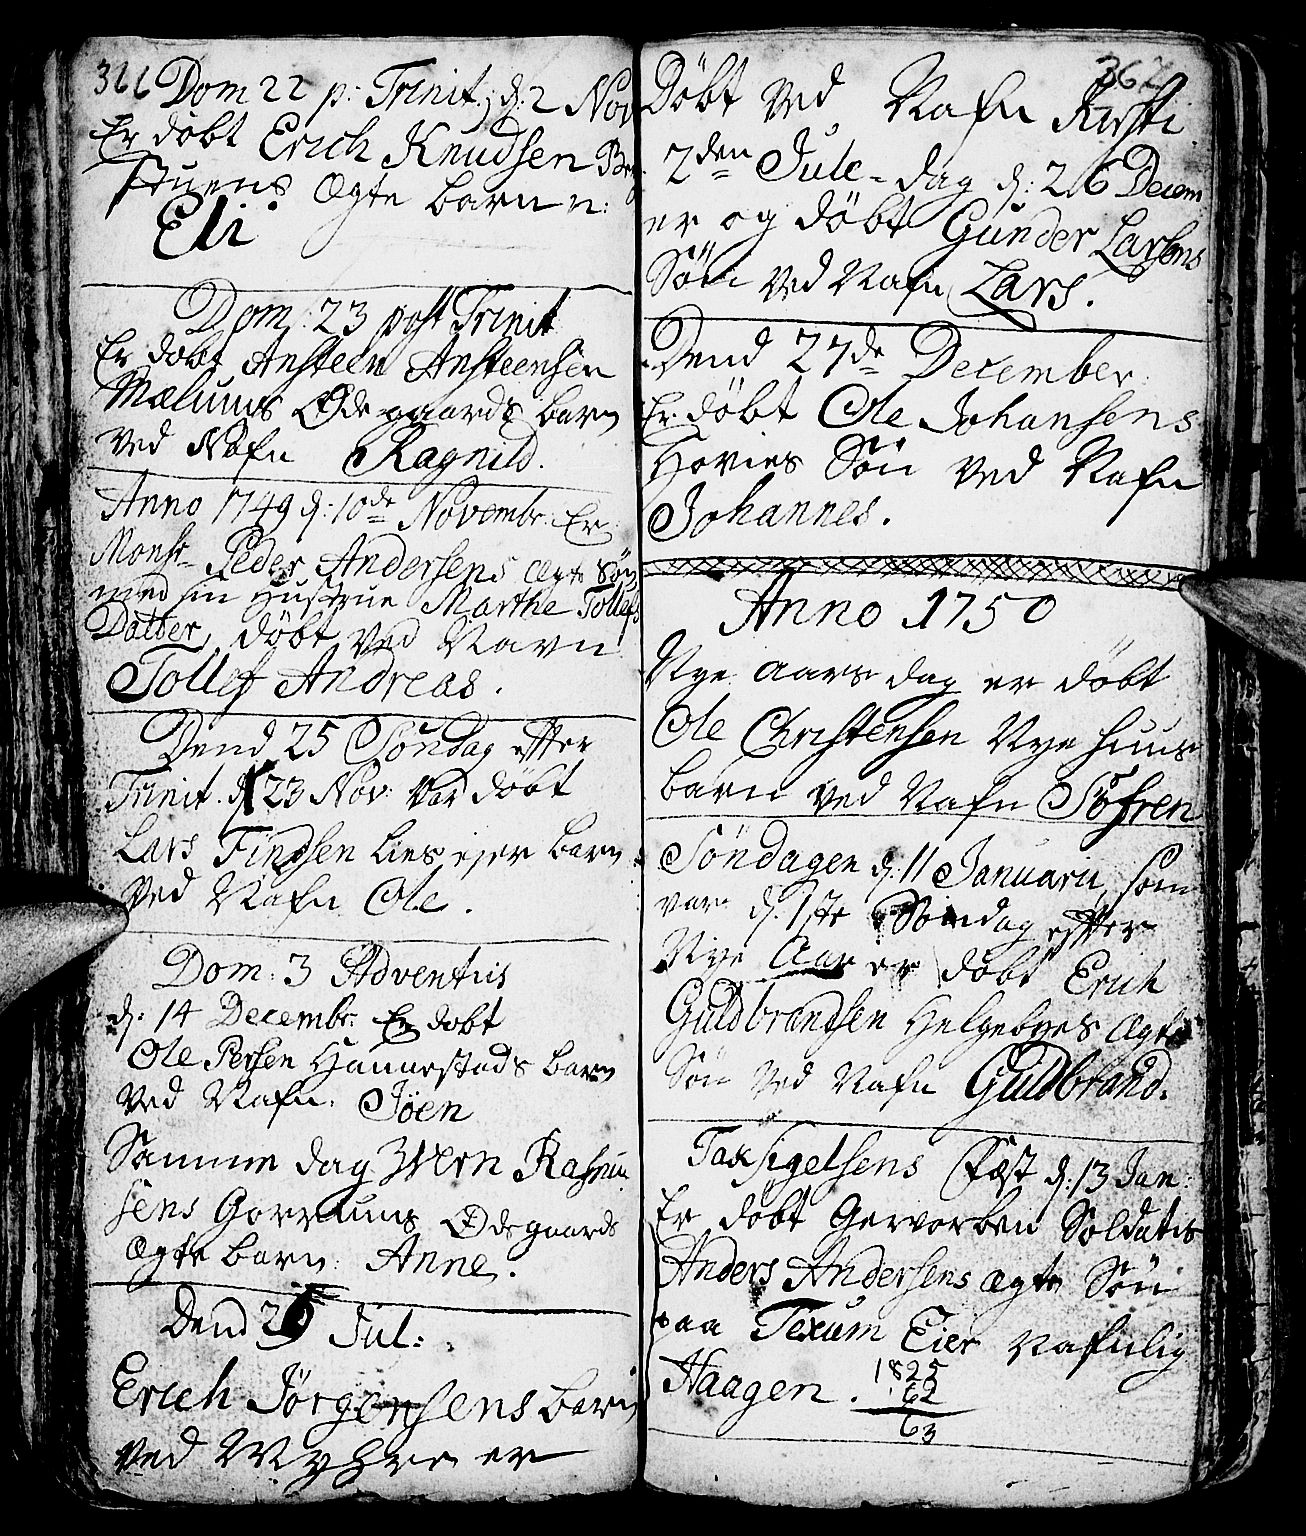 366 Dom 22 p: Trinit. d: 2 Nov
Er döbt Erich Knudsen
stuens Ægte barn n:
Eli
Dom: 23 post Trinit
Er döbt Ansteen Ansteensen
Mælums Ødegaards barn
ved Nafn Ragnild.
Anno 1749 d: 10de Novembr: Er
Monsr Peder Andersens Ægte Sön
med sin Hustrue Marthe Tollefs
Datter, döbt ved Navn
Tollef Andreas.
Dend 25 Söndag efter
Trinit. d 23 Nov: var döbt
Lars Findsen Lies ejer barn
ved Nafn Ole.
Dom: 3 Adventus
d: 14 Decembr: Er döbt
Ole Persen Hannestads barn
ved Nafn: Jöen
Samme dag Iwern Rasmu
sens Gorrums Ødegaards
Ægte barn: Anne.
Dend 25 Jul:
Erich Jörgensens barn
ved Myhre er
367
Döbt ved Nafn Kirsti
2den Jule-dag d: 26 Decem
er og döbt Gunder Larsens
Sön ved Nafn Lars.
Dend 27de December:
Er döbt Ole Johansens
Hovies Sön ved Nafn
Johannes.
Anno 1750
Nye Aars dag er döbt
Ole Christensen Nye huus
barn ved Nafn Söfren
Söndagen d: 11 Januarii, som
var d. 1ste Söndag efter
Nye Aar er döbt Erich
Guldbrandsen Helgebyes Ægte
Sön ved Nafn Guldbrand.
Taxsigelsens Fæst d: 13 Jan:
Er döbt Gevorben Soldatis
Anders Andersens Ægte Sön
paa Texum Eier Nafnlig
Haagen. 1825
62
63